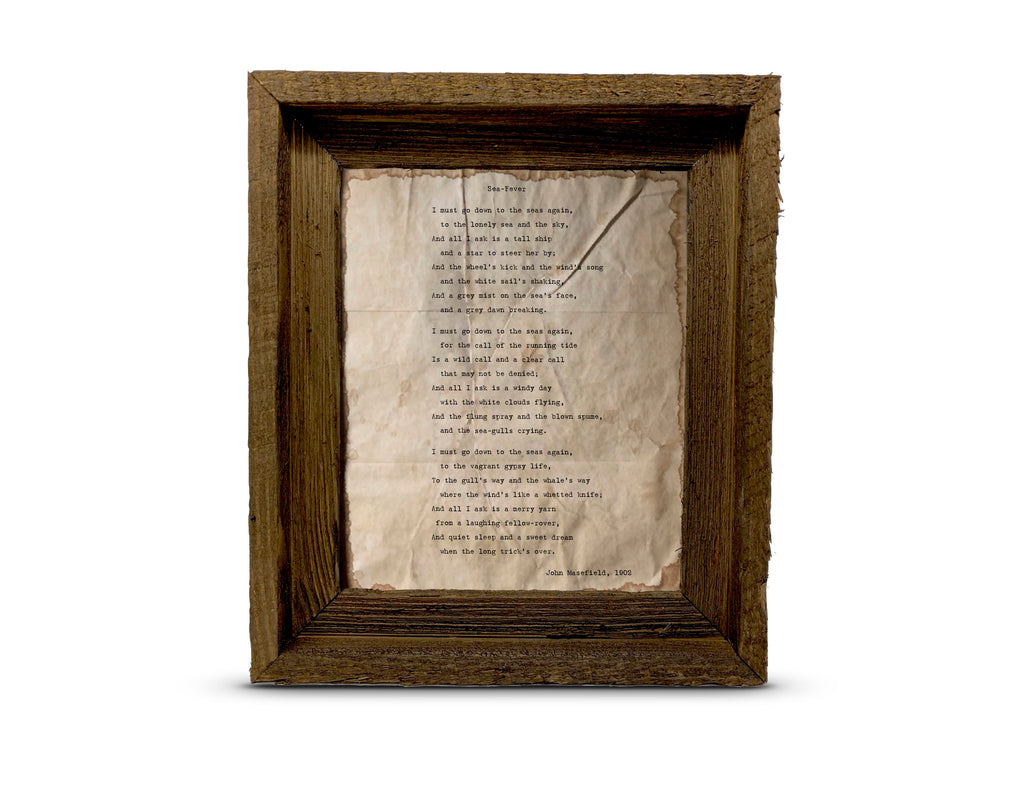 Sea-Fever
I must go down to the seas again,
to the lonely sea and the sky,
And all I ask is a tall ship
and a star to steer her by;
And the wheel's kick and the wind's song
and the white sail's shaking,
And a grey mist on the sea's face,
and a grey dawn breaking.
I must go down to the seas again,
for the call of the running tide
Is a wild call and a clear call
that may not be denied;
And all I ask is a windy day
with the white clouds flying,
And the flung spray and the blown spume,
and the sea-gulls crying.
I must go down to the seas again,
to the vagrant gypsy life,
To the gull's way and the whale's way
where the wind's like a whetted knife;
And all I ask is a merry yarn
from a laughing fellow-rover,
And quiet sleep and a sweet dream
when the long trick's over.
John Masefield, 1902